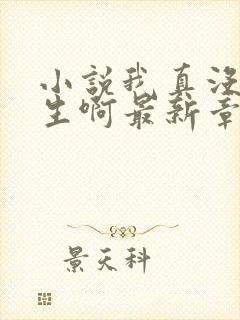 小説我真没
生啊最新章
景天科